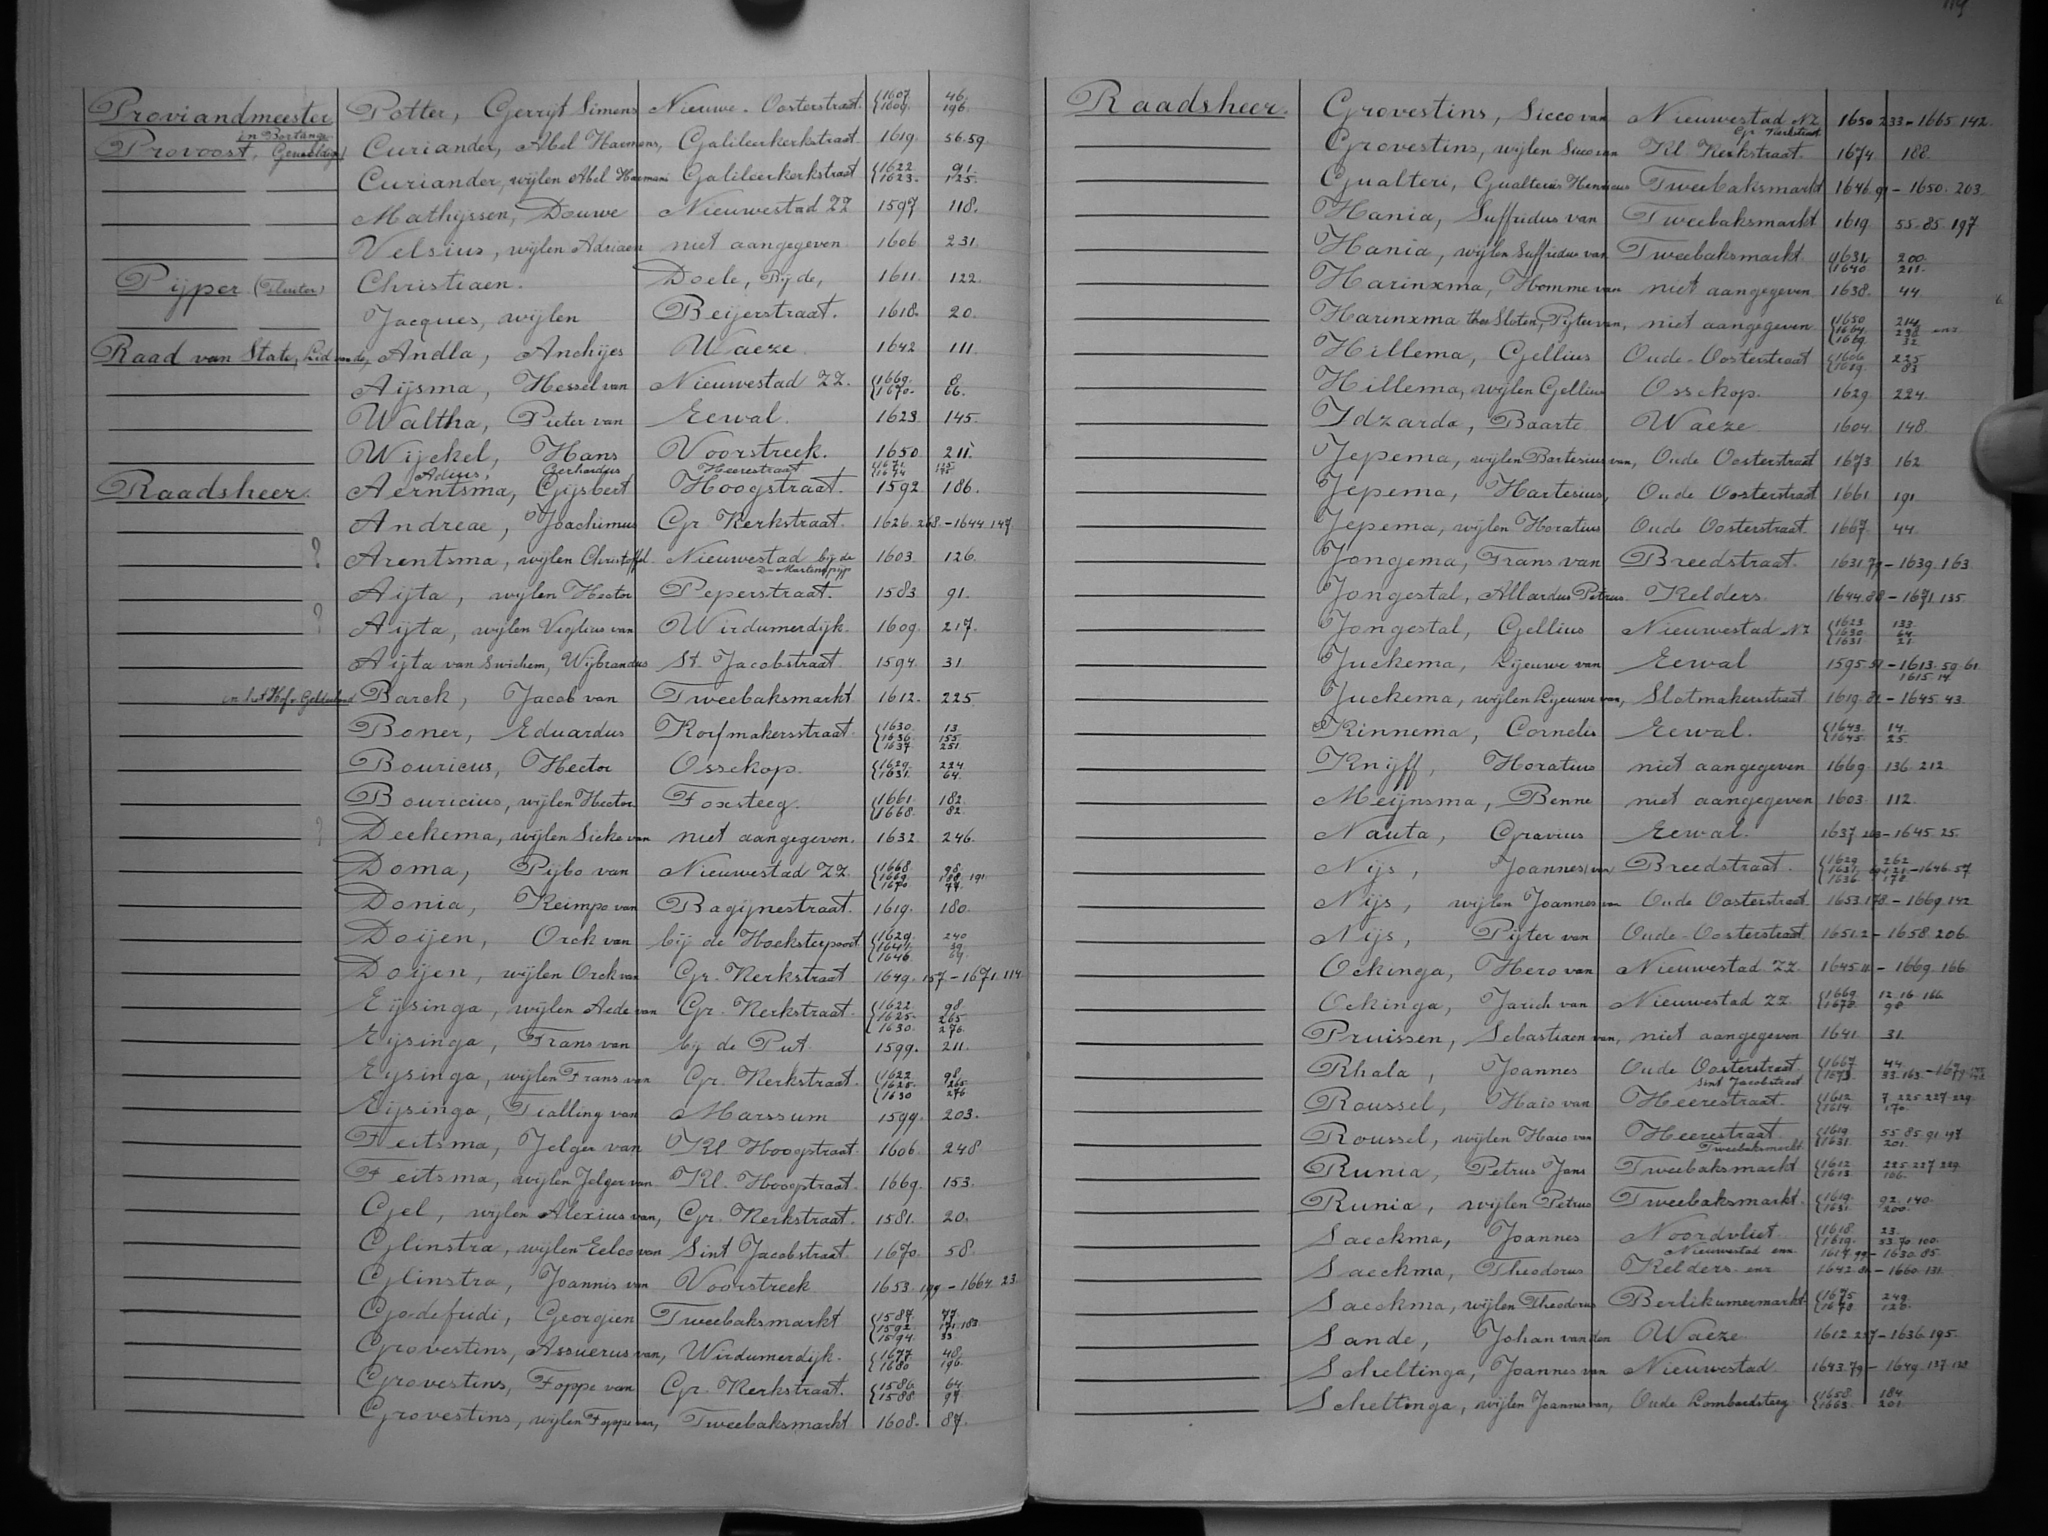 Proviandmeester Potter, Gerryt Simens Nieuwe-Oosterstraat. 1607. 46. 1609. 196.
in Bortange
Provoost, Geweldige Curiander, Abel Harmens, Galileerkerkstraat 1619. 56.59.
Curiander, wijlen Abel Harmens Galileerkerkstraat 1622. 91. 1623. 125.
Mathijssen, Douwe Nieuwestad ZZ 1597 118.
Velsius, wijlen Adriaen niet aangegeven 1606 231.
Pijper (Fluiter) Christiaen. Doele, Bij de, 1611. 122.
Jacques, wijlen Beijerstraat. 1618. 20.
Raad van State, Lid van de, Andla, Anchijes Waeze 1642 111.
Aijsma, Hessel van Nieuwestad ZZ. 1669. 8. 1670. 66.
Waltha, Pieter van Eewal. 1623 145.
Wijckel, Hans Voorstreek. 1650. 211.
Adius, Gerhardus, Heerestraat 1672. 1674
Raadsheer. Aerntsma, Gijsbert Hoogstraat. 1592 186.
Andreae, Joachimus Gr. Kerkstraat. 1626. 268. - 1644. 147.
? Arentsma, wijlen Christoffel. Nieuwestad bij de 1603. 126.
Aijta, wijlen Hector Peperstraat. 1583 91.
? Aijta, wijlen Viglius van Wirdumerdijk. 1609. 217.
Aijta van Swichem, Wijbrandus St. Jacobstraat. 1594. 31.
in het Hof v. Gelderland Barck, Jacob van Tweebaksmarkt 1612. 225.
Boner, Eduardus Korfmakersstraat. 1630. 13. 1636. 155. 1637. 251.
Bouricus, Hector Ossekop. 1629. 224 1631. 64.
Bouricius, wijlen Hector Foxsteeg. 1661. 182. 1668. 82.
? Deekema, wijlen Sicke van niet aangegeven. 1632. 246.
Doma, Pijbo van Nieuwestad ZZ. 1668. 98. 1669. 188. 191. 1670 44.
Donia, Keimpo van Bagijnestraat. 1619. 180.
Doijen, Orck van bij de Hoeksterpoort 1629. 240 1641. 39. 1646. 69.
Doijen, wijlen Orck van Gr. Kerkstraat 1649. 157 - 1671. 114
Eijsinga, wijlen Aede van Gr. Kerkstraat. 1622. 98. 1625. 265. 1630. 276.
Eijsinga, Frans van bij de Put. 1599. 211.
Eysinga, wijlen Frans van Gr. Kerkstraat. 1622. 98. 1625. 265. 1630 276
Eijsinga, Tialling van Marssum 1599. 203.
Feitsma, Jelger van Kl. Hoogstraat. 1606. 248.
Feitsma, wijlen Jelger van Kl. Hoogstraat. 1669. 153.
Gel, wijlen Alexius van, Gr. Kerkstraat. 1581. 20.
Glinstra, wijlen Eelco van Sint Jacobstraat. 1670. 58.
Glinstra, Joannis van Voorstreek 1653. 199 - 1664. 23.
Godefridi, Georgien Tweebaksmarkt 1587. 77. 1592. 171.183. 1594. 33
Grovestins, Assuerus van, Wirdumerdijk. 1677 48. 1680 196.
Grovestins, Foppe van Gr. Kerkstraat. 1586. 64. 1588 97.
Grovestins, wijlen Foppe van, Tweebaksmarkt 1608. 87.
Raadsheer. Grovestins, Sicco van Nieuwestad NZ 1650 233 - 1665. 142.
Gr. Kerkstraat
Grovestins, wijlen Sicco van Kl. Kerkstraat. 1674. 188.
Gualteri, Gualterius Henricus Tweebaksmarkt 1646. 91 - 1650. 203.
Hania, Suffridus van Tweebaksmarkt 1619 55. 85. 197
Hania, wijlen Suffridus van Tweebaksmarkt. 1631. 200. 1640 211.
Harinxma, Homme van niet aangegeven 1638. 44.
Harinxma thoe Sloten, Pijter van, niet aangegeven 1650 214 1664. 298 enz. 1669. 32.
Hillema, Gellius Oude-Oosterstraat 1606 225 1619. 83
Hillema, wijlen Gellius Ossekop. 1629. 224.
Idzarda, Baarte Waeze 1604. 148.
Jepema, wijlen Bartesius van, Oude Oosterstraat 1673 162
Jepema, Hartesius, Oude Oosterstraat 1661 191
Jepema, wijlen Horatius Oude Oosterstraat. 1667. 44.
Jongema, Frans van Breedstraat. 1631. 79 - 1639. 163.
Jongestal, Allardus Petrus. Kelders. 1644. 88 - 1671. 135.
Jongestal, Gellius Nieuwestad NZ 1623 133. 1630. 64. 1631. 21.
Juckema, Lijeuwe van Eewal 1595. 51 - 1613. 59. 61.
1615. 14.
Juckema, wijlen Lyeuwe van, Slotmakerstraat 1619. 82 - 1645. 43.
Kinnema, Cornelis Eewal. 1643. 14. 1645. 25.
Knijff, Horatius niet aangegeven 1669. 136. 212.
Meijnsma, Benne niet aangegeven 1603. 112.
Nauta, Gravius Eewal. 1637. 263 - 1645. 25.
Nijs, Joannes van Breedstraat. 1629. 262 1631. - 1646. 57 1636. 178.
Nijs, wijlen Joannes van Oude Oosterstraat. 1653. 178. - 1669. 142
Nijs, Pijter van Oude-Oosterstraat 1651. 2 - 1658. 206.
Ockinga, Hero van Nieuwestad ZZ. 1645. 11. - 1669. 166
Ockinga, Jarich van Nieuwestad ZZ 1669. 12. 16. 166. 1670. 98.
Pruissen, Sebastiaen van, niet aangegeven 1641. 31.
Rhala, Joannes Oude Oosterstraat. 1667 44. 1673. 33. 163.
Sint Jacobstraat
Roussel, Haio van Heerestraat. 1612 7. 225. 227. 229. 1614. 170.
Roussel, wijlen Haio van Heerestraat. 1619 55. 85. 91. 197 1631. 201.
Tweebaksmarkt.
Runia, Petrus Jans Tweebaksmarkt 1612 225. 227. 229. 1613 106.
Runia, wijlen Petrus Tweebaksmarkt. 1619. 92. 140. 1631. 200.
Saeckma, Joannes Noordvliet 1618. 23. 1619. 33. 70. 100.
Nieuwestad enz. 1614. 99 - 1630. 85.
Saeckma, Theodorus Kelders enz 1642. 81 - 1660. 131.
Saeckma, wijlen Theodorus Berlikumermarkt. 1675 249. 1678 126.
Sande, Johan van den Waeze 1612. 257 - 1636. 195.
Scheltinga, Joannes van Nieuwestad 1643. 79 - 1649. 137. 138
Scheltinga, wijlen Joannes van, Oude Lombardsteeg 1658. 184. 1663. 201.